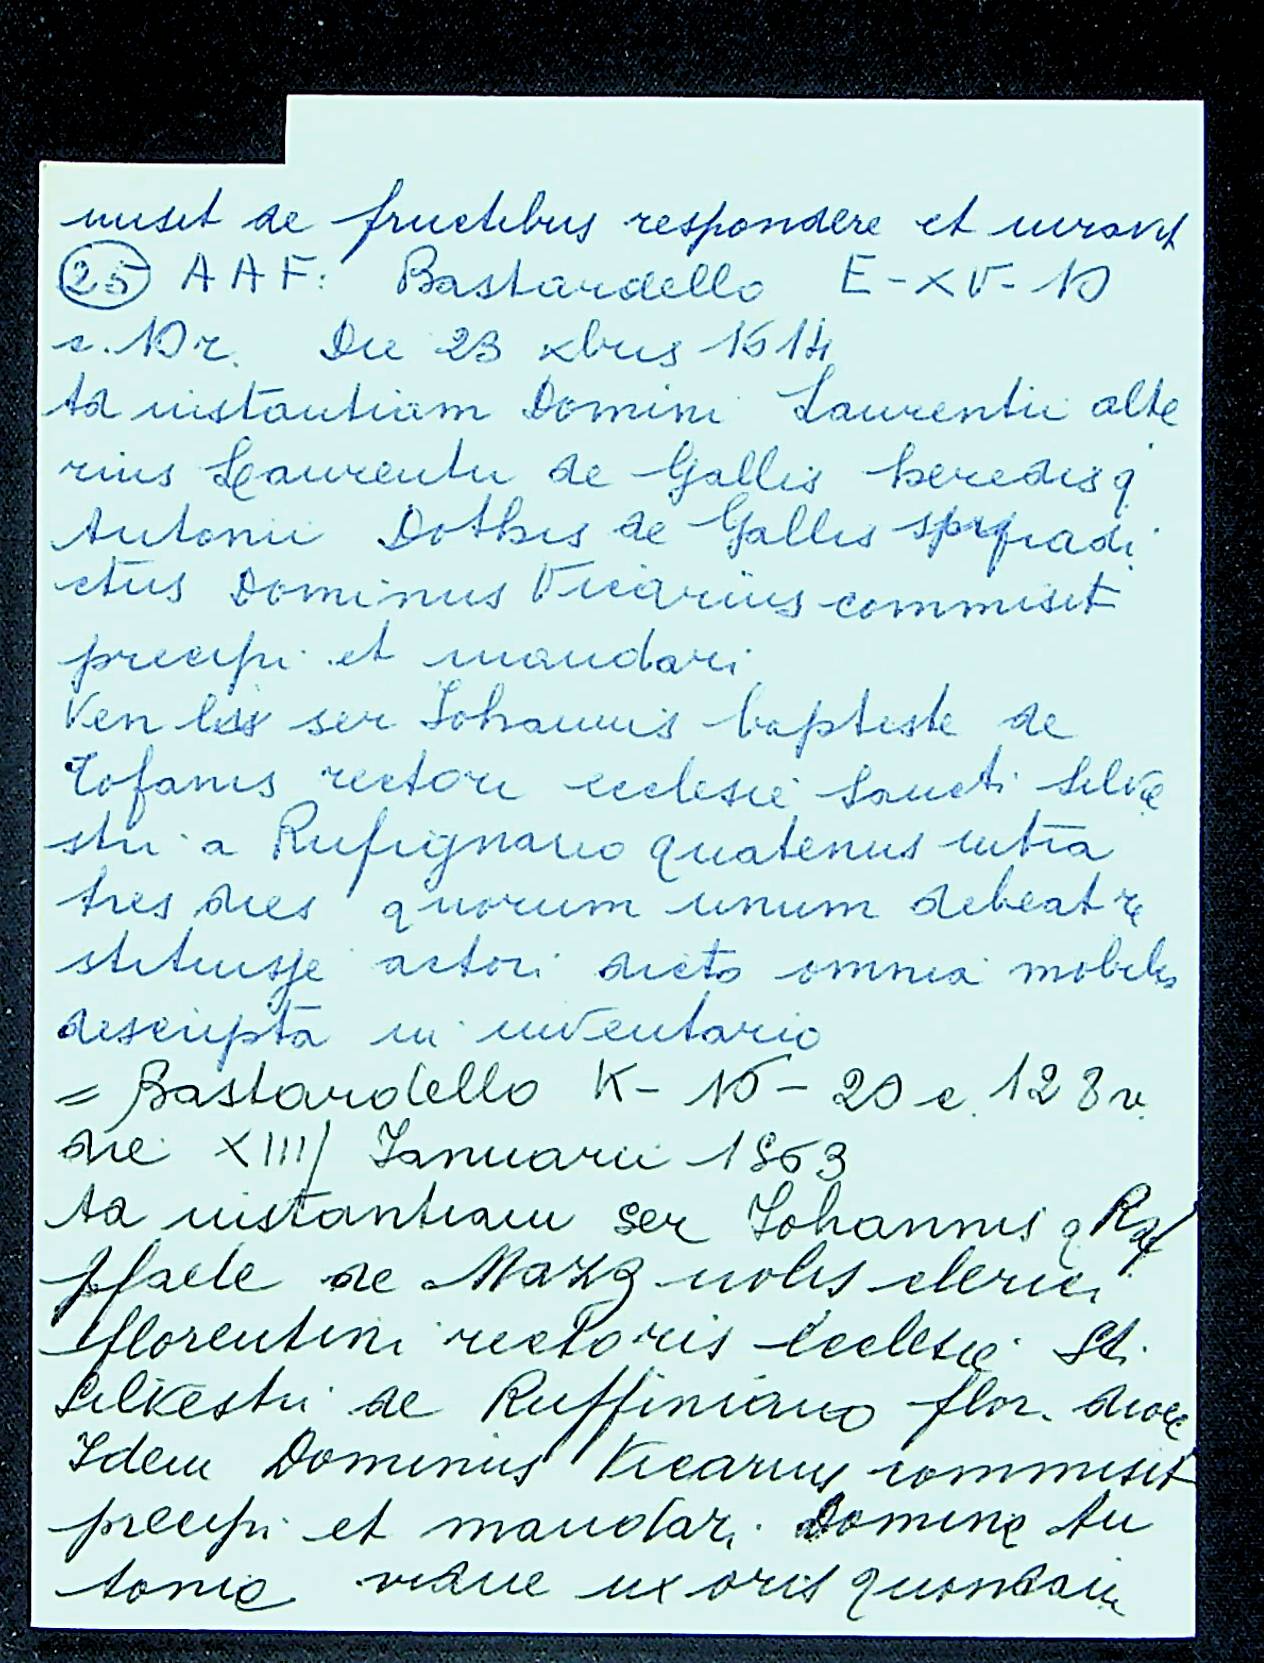 misit de fructibus respondere et iuravit
(25) AAF: Bastardello E-XV-10
c. 10 r. Die 23 xbris 1514
Ad instantiam Domini Laurentii alte
rius Laurentii de Gallis heredis q
Antonii Dothis de Gallis predi
ctus Dominus Vicarius commisit
precipi et mandari
Ven li ser Iohannis baptiste de
Tofanis rectori ecclesie Sancti Silve
stri a Rufignano quatenus intra
tres dies quorum unum debeat re
stituisse actori dicto omnia mobilia
descripta in inventario
= Bastardello K- 15 - 20 c. 128 v.
die XIII/ Ianuarii 1563
Ad instantiam ser Iohannis q Raf
ffaele de clerici
florentini rectoris ecclesie Sti
Silvestri de Ruffiniano flor. dioce
Idem Dominus Vicarius commisit
precipi et mandari Domine An
tonie vidue uxoris quondam